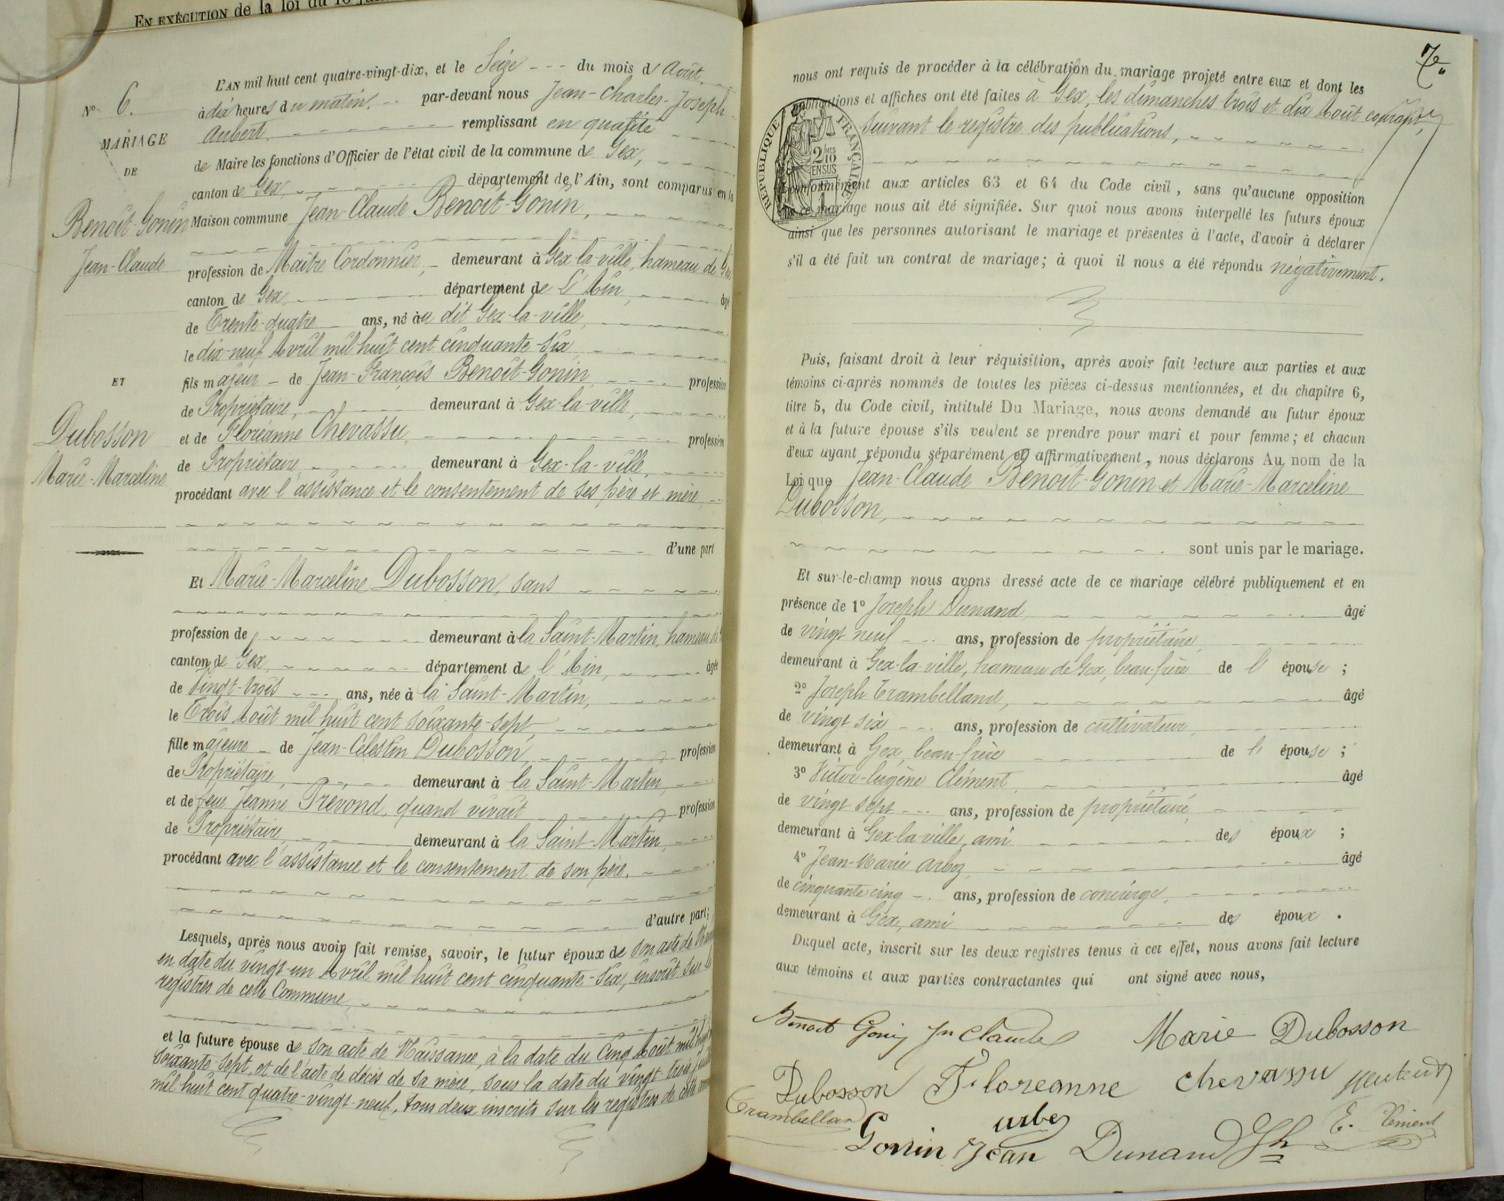 EN EXÉCUTION de la loi du 18
L'AN mil huit cent quatre-vingt-dix, et le Seize du mois d'Août,
N° 6.
à dix heures du matin, par-devant nous Jean-Charles-Joseph
MARIAGE
Aubert, remplissant en qualité
DE
de Maire les fonctions d'Officier de l'état civil de la commune de Gex,
canton de Gex, département de l'Ain, sont comparus en la
Benoît-Gonin
Maison commune Jean-Claude Benoît-Gonin,
Jean-Claude
profession de Maître Cordonnier, demeurant à Gex-la-ville, hameau de Gex
canton de Gex, département de l'Ain, âgé
de Trente-quatre ans, né au dit Gex-la-ville,
le dix-neuf Avril mil huit cent cinquante-six,
ET
fils majeur de Jean-François Benoît-Gonin, profession
de Propriétaire, demeurant à Gex-la-ville,
Dubosson
et de Floréanne Chevassu, profession
Marie-Marceline
de Propriétaire, demeurant à Gex-la-ville,
procédant avec l'assistance et le consentement de ses père et mère,
d'une part
Et Marie-Marceline Dubosson, sans
profession de, demeurant à la Saint-Martin, hameau de
canton de Gex, département de l'Ain, âgée
de Vingt-trois ans, née à la Saint-Martin,
le Trois Août mil huit cent soixante-sept,
fille majeure de Jean-Célestin Dubosson, profession
de Propriétaire, demeurant à la Saint-Martin,
et de feue Jeanne Prevond, quand vivait profession
de Propriétaire, demeurant à la Saint-Martin,
procédant avec l'assistance et le consentement de son père.
d'autre part;
Lesquels, après nous avoir fait remise, savoir, le futur époux de son acte de
en date du vingt-un Avril mil huit cent cinquante-six, inscrit sur les
registres de cette Commune,
et la future épouse de son acte de Naissance, à la date du Cinq Août mil huit
soixante-sept, et de l'acte de décès de sa mère, sous la date du vingt-trois
mil huit cent quatre-vingt-neuf, tous deux inscrits sur les registres de cette
7e
nous ont requis de procéder à la célébration du mariage projeté entre eux et dont les
publications et affiches ont été faites à Gex, les dimanches trois et dix Août courant,
suivant le registre des publications,
RÉPUBLIQUE FRANÇAISE
2/10 EN SUS
conformément aux articles 63 et 64 du Code civil, sans qu'aucune opposition
à ce mariage nous ait été signifiée. Sur quoi nous avons interpellé les futurs époux
ainsi que les personnes autorisant le mariage et présentes à l'acte, d'avoir à déclarer
s'il a été fait un contrat de mariage; à quoi il nous a été répondu négativement.
Puis, faisant droit à leur réquisition, après avoir fait lecture aux parties et aux
témoins ci-après nommés de toutes les pièces ci-dessus mentionnées, et du chapitre 6,
titre 5, du Code civil, intitulé Du Mariage, nous avons demandé au futur époux
et à la future épouse s'ils veulent se prendre pour mari et pour femme; et chacun
d'eux ayant répondu séparément et affirmativement, nous déclarons Au nom de la
Loi que Jean-Claude Benoît-Gonin et Marie-Marceline
Dubosson,
sont unis par le mariage.
Et sur-le-champ nous avons dressé acte de ce mariage célébré publiquement et en
présence de 1° Joseph Dunand, âgé
de vingt neuf ans, profession de propriétaire,
demeurant à Gex-la-ville, hameau de Gex, beau-frère de l'épouse;
2° Joseph Trambelland, âgé
de vingt six ans, profession de cultivateur,
demeurant à Gex, beau-frère de l'épouse;
3° Victor-Eugène Clément, âgé
de vingt sept ans, profession de propriétaire,
demeurant à Gex-la-ville, ami des époux;
4° Jean-Marie Arbez, âgé
de cinquante cinq ans, profession de concierge,
demeurant à Gex, ami des époux.
Duquel acte, inscrit sur les deux registres tenus à cet effet, nous avons fait lecture
aux témoins et aux parties contractantes qui ont signé avec nous,
Benoit Gonin Jn Claude Marie Dubosson
Dubosson Floreanne Chevassu
Trambelland arbez E. Clément
Gonin Jean Dunand Jh